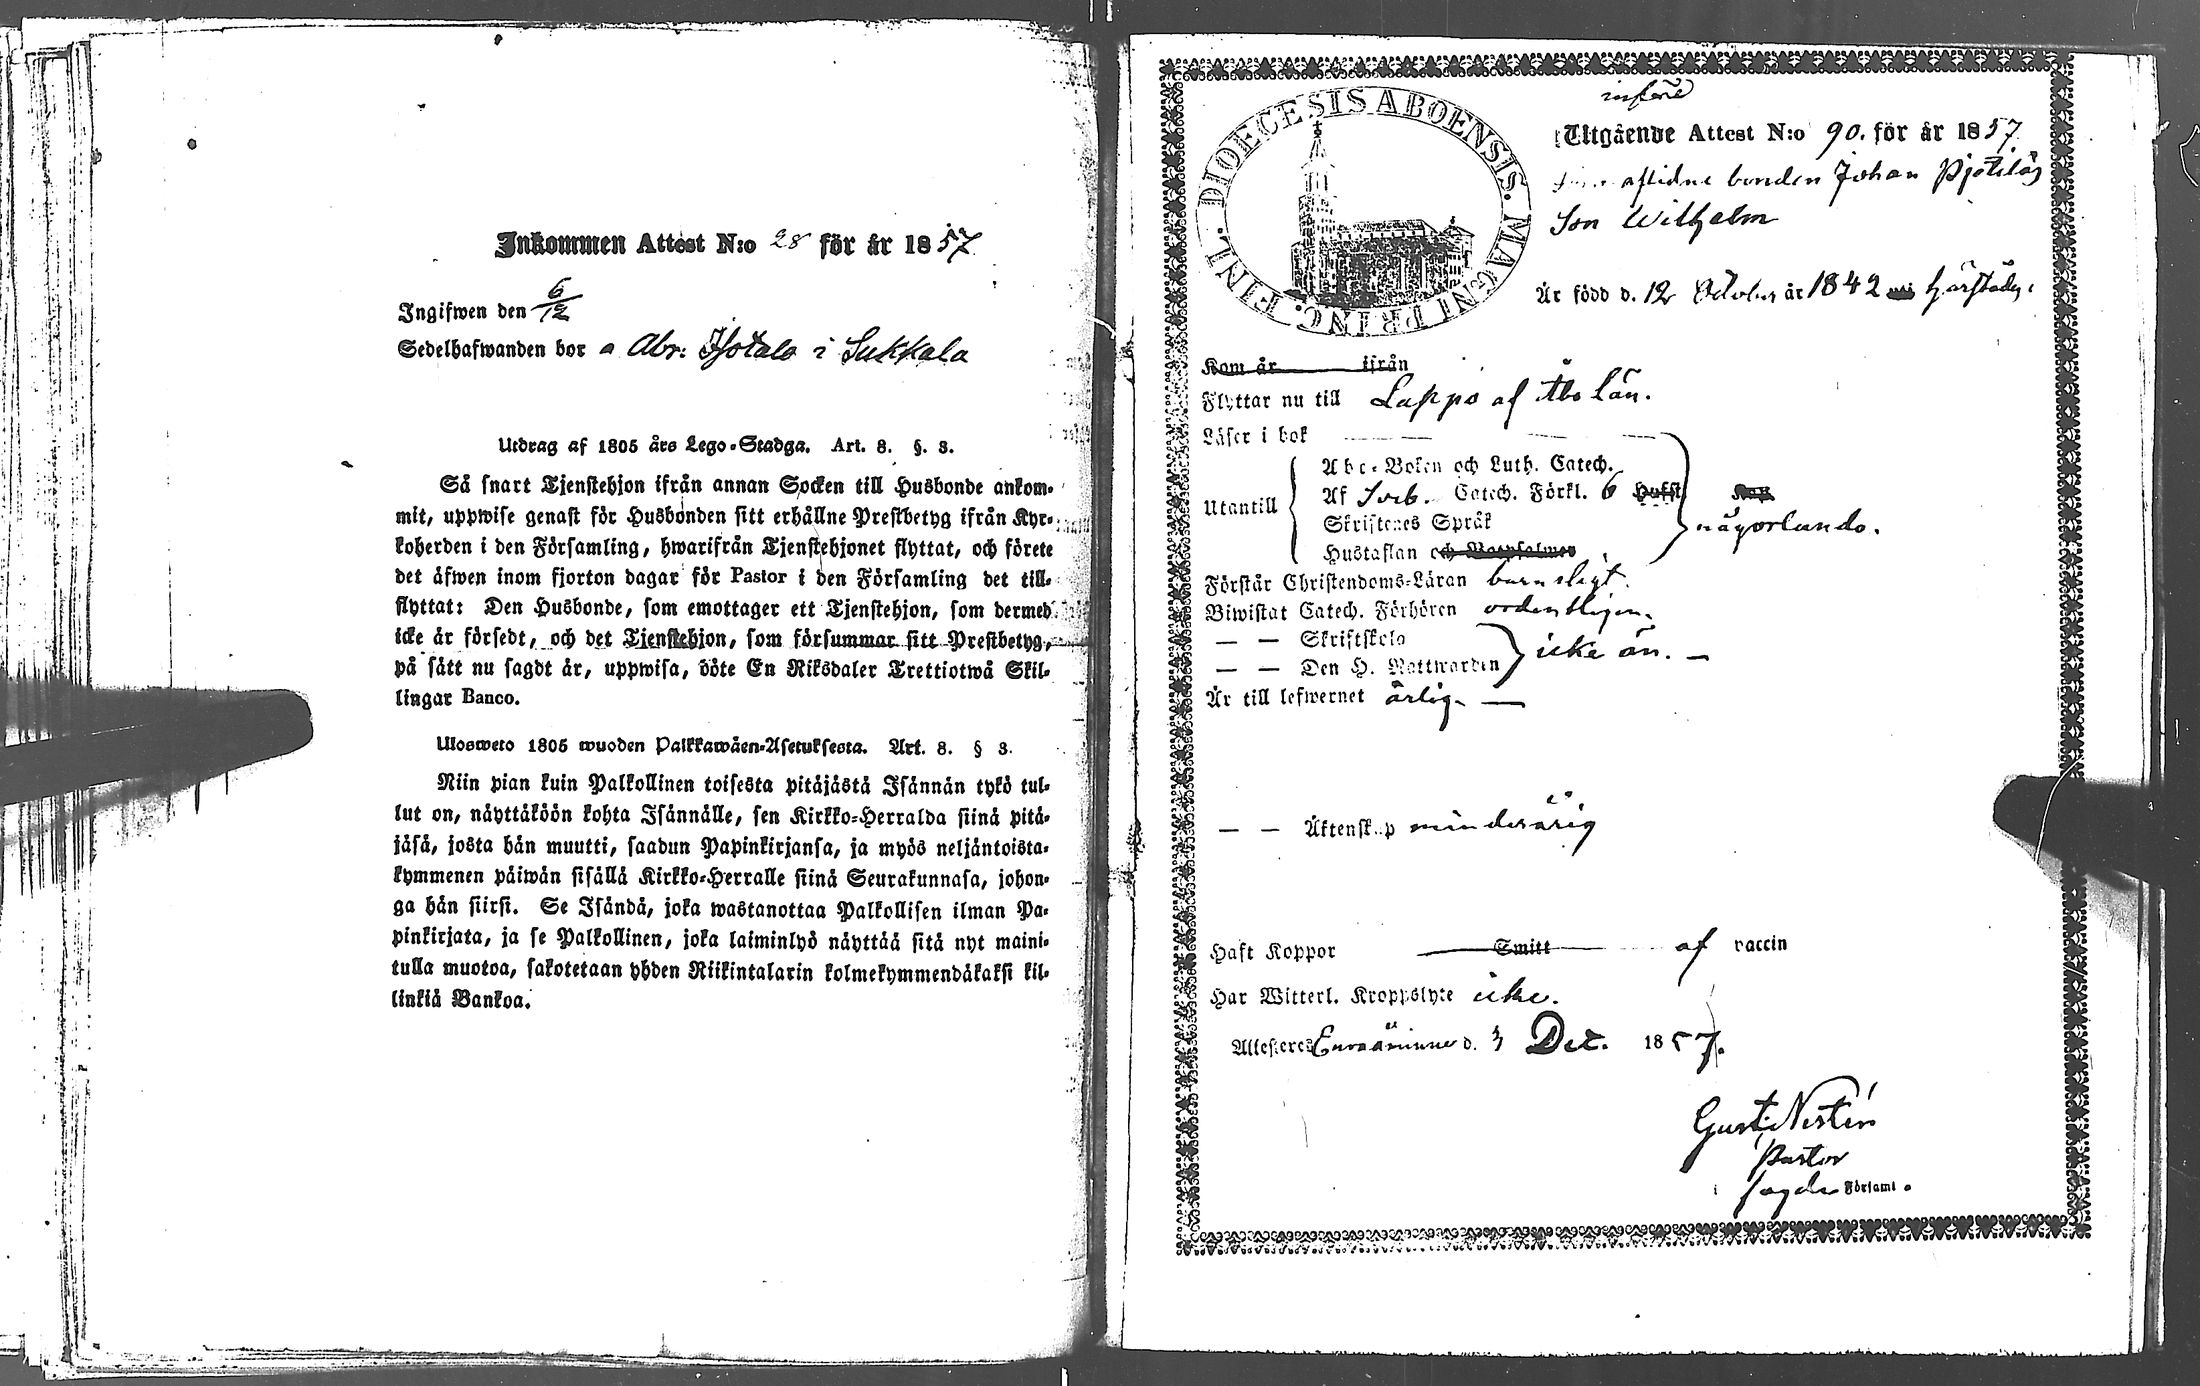 Inkommen Attest N:o 28 för år 1857
Ingifwen den 6/12
Sedelhafwanden bor a Abr: Isotalo i Sukkala
Utdrag af 1805 års Lego-Stadga. Art. 8. §. 3.
Så snart Tjenstehjon ifrån annan Socken till Husbonde ankom-
mit, uppwise genast för Husbonden sitt erhållne Prestbetyg ifrån Kyr-
koherden i den Församling, hwarifrån Tjenstehjonet flyttat, och förete
det äfwen inom fjorton dagar för Pastor i den Församling det till-
flyttat: Den Husbonde, som emottager ett Tjenstehjon, som dermed
icke är försedt, och det Tjenstehjon, som försummar sitt Prestbetyg,
på sätt nu sagdt är, uppwisa, böte En Riksdaler Trettiotwå Skil-
lingar Banco.
Ulosweto 1805 wuoden Palkkawäen-Asetuksesta. Art. 8. § 3.
Niin pian kuin Palkollinen toisesta pitäjästä Isännän tykö tul-
lut on, näyttäköön kohta Isännälle, sen Kirkko-Herralda siinä pitä-
jäsä, josta hän muutti, saadun Papinkirjansa, ja myös neljäntoista-
kymmenen päiwän sisällä Kirkko-Herralle siinä Seurakunnasa, johon-
ga hän siirsi. Se Isändä, joka wastanottaa Palkollisen ilman Pa-
pinkirjata, ja se Palkollinen, joka laiminlyö näyttää sitä nyt maini-
tulla muotoa, sakotetaan yhden Riikintalarin kolmekymmendäkaksi kil-
linkiä Bankoa.
DIOECESIS ABOENSIS. MAGNI PRINC. FINL.
införd
Utgående Attest N:o 90. för år 1857
aflidne bonden Johan Pjotilas
Son Wilhelm
Är född d. 12 October år 1842 härstädes
Kom år ifrån
Flyttar nu till Lappo af Åbo Län.
Läser i bok
Utantill
Abc-Boken och Luth. Catech.
Af Sveb. Catech. Förkl. 6 Hufst
Skriftenes Språk
Hustaflan och Botpsalmer
någorlunda.
Förstår Christendoms-Läran barnsligt.
Biwistat Catech. Förhören ordentligen.
— — Skriftskola
— — Den H. Nattwarden
icke än. —
Är till lefwernet ärlig. —
— — Äktenskap minderårig
Haft Koppor Smitt af vaccin
Har Witterl. Kroppslyte icke.
Attesteres Euraåminne d. 3 Dec. 1857.
Gust: Nestén
Pastor
i sagde Församl.